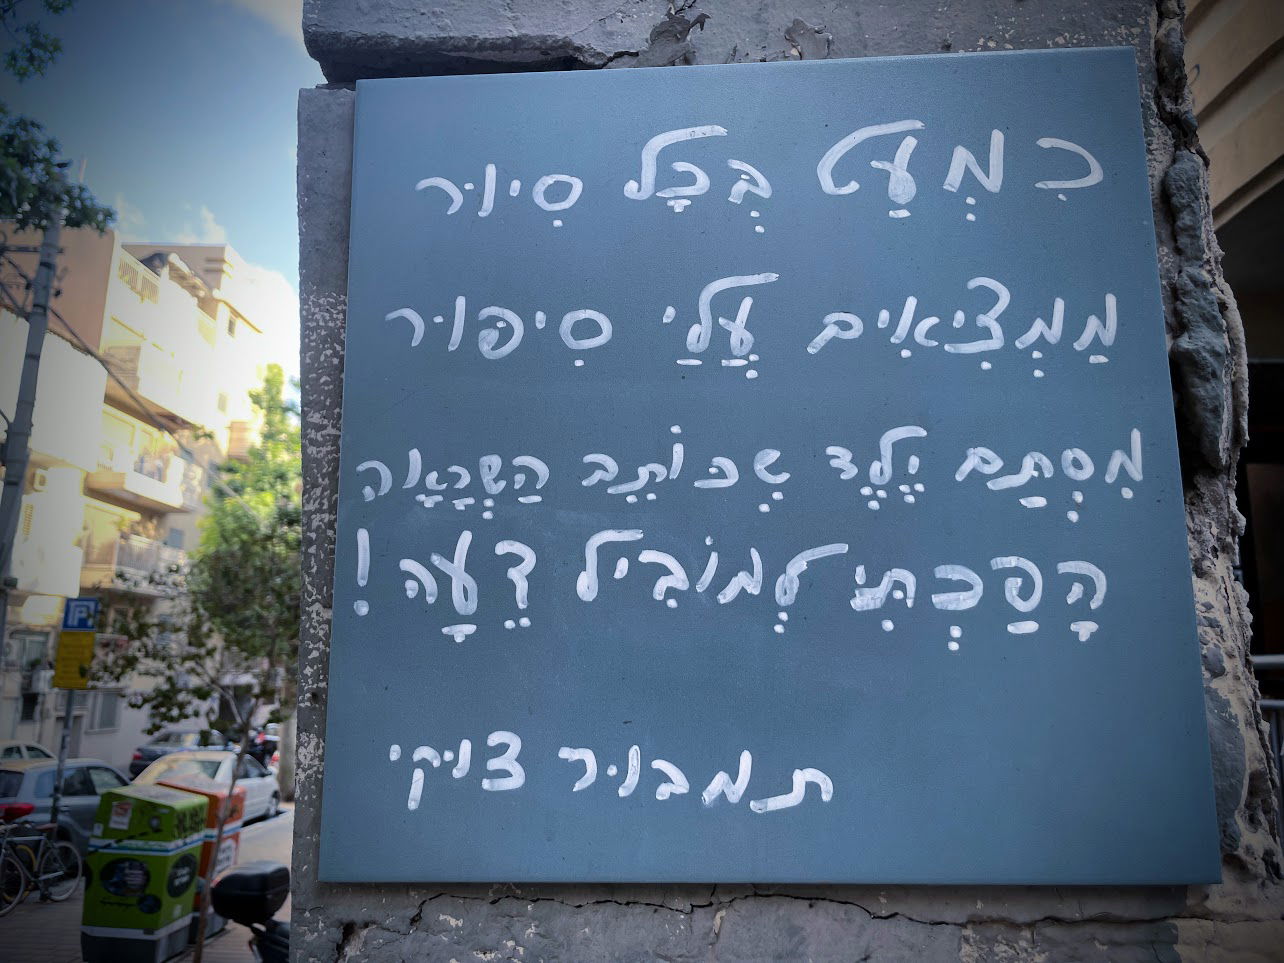 כִּמְעַט בְּכָל סִיוּר
מַמְצִיאִים עָלַי סִיפּוּר
מִסְתַם יֶלֶד שֶכּוֹתֵב הַשְרָאָה
הָפַכְתִי לְמוֹבִיל דֵעָה!
תמבור צויקי
P